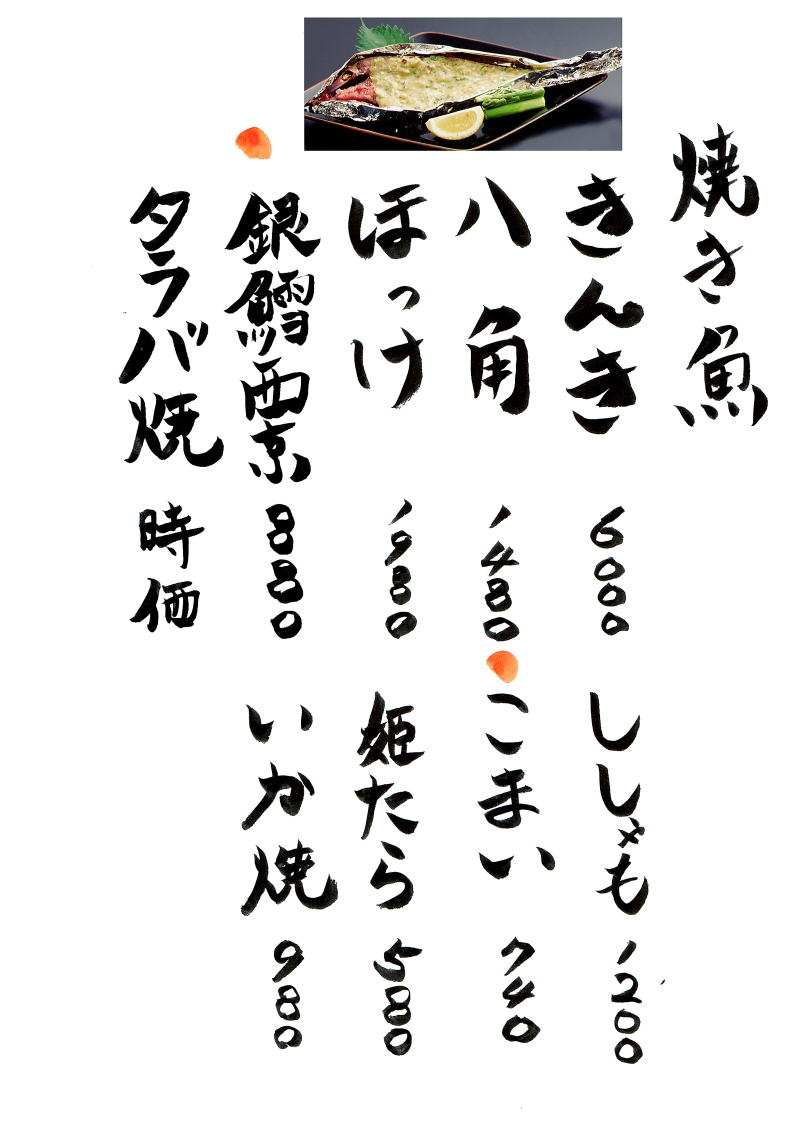 焼き魚
きんき 6000
八角 1480
ほっけ 1980
銀鱈西京 880
タラバ焼 時価
ししゃも 1200
こまい 740
姫たら 580
いか焼 980